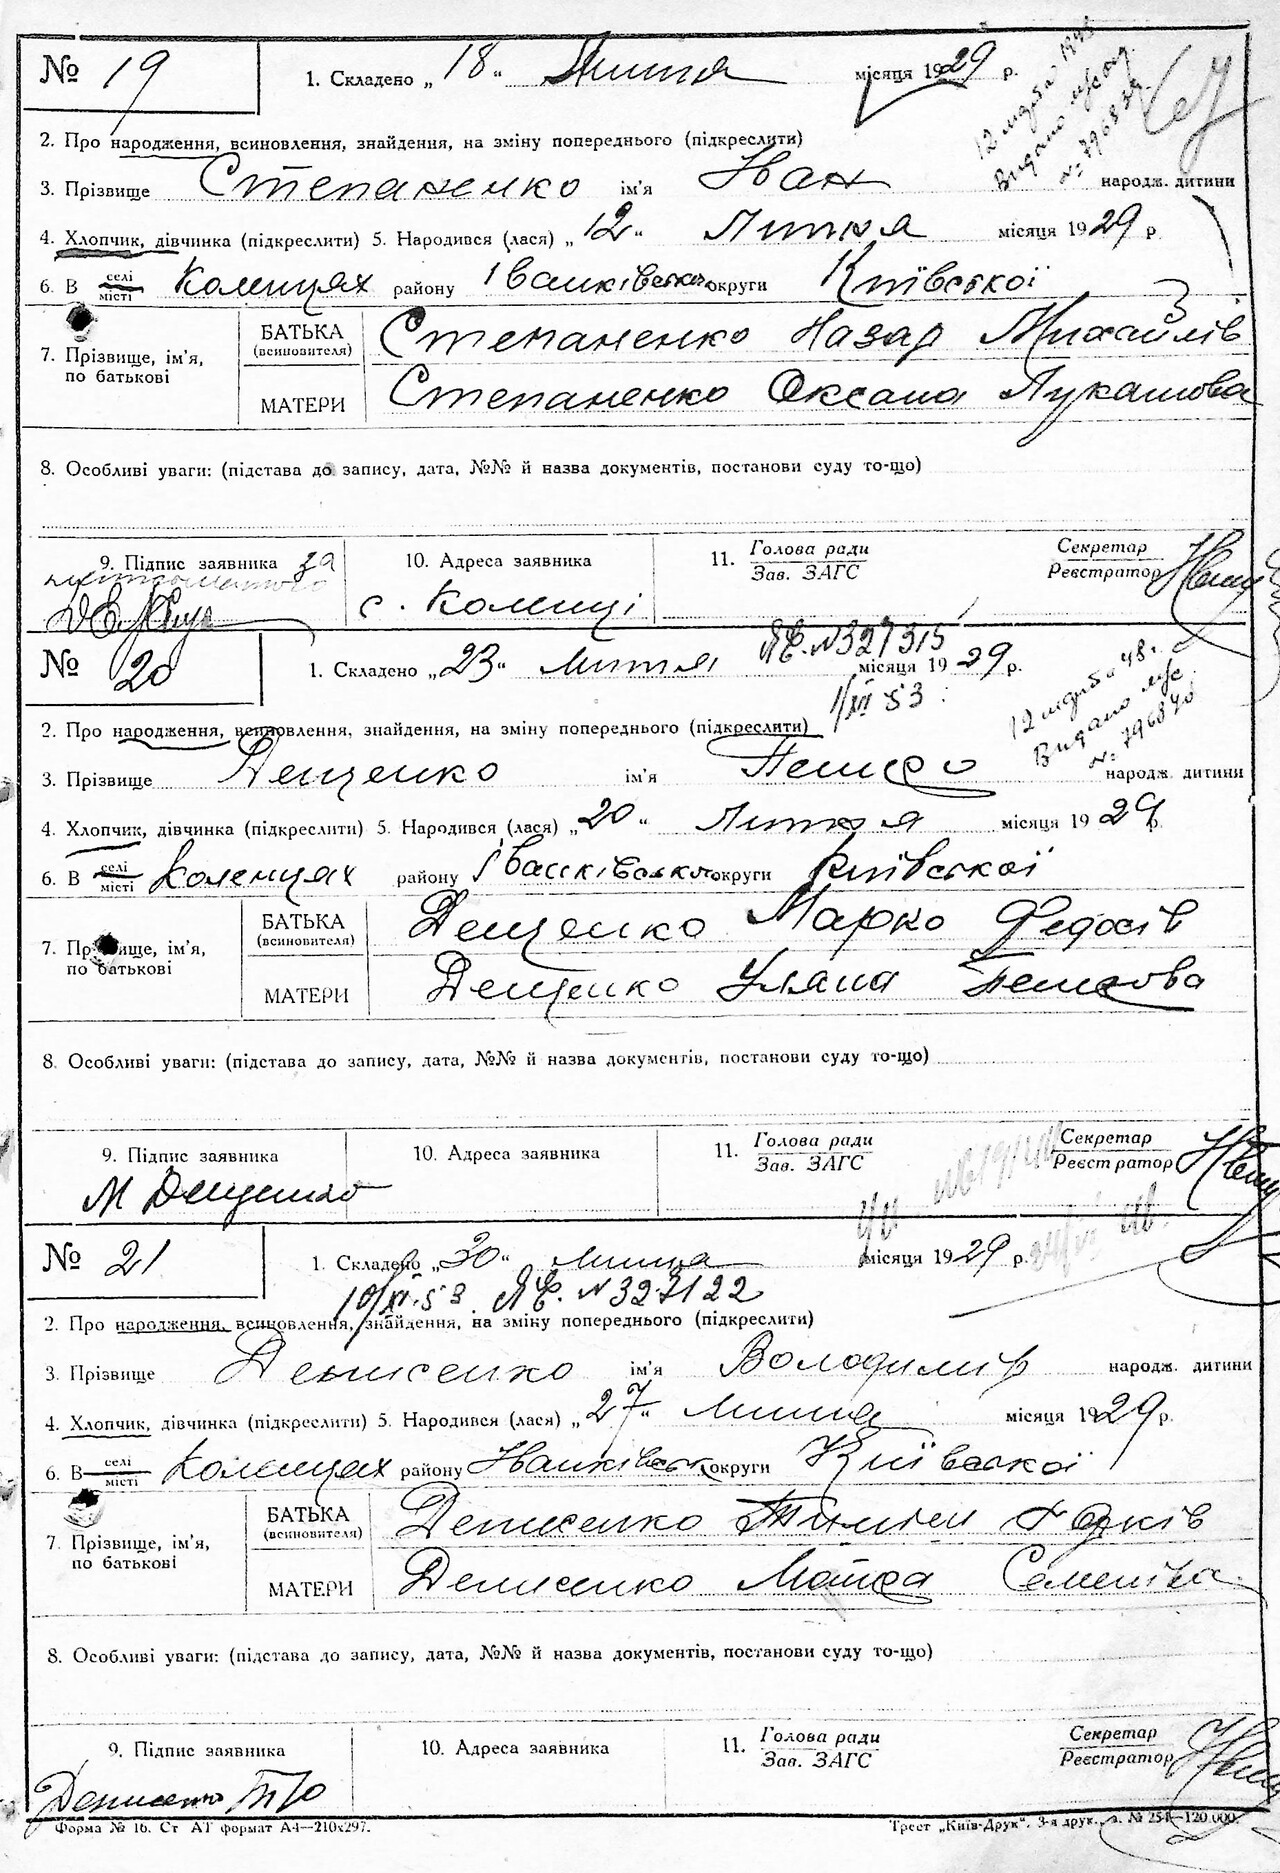 № 19
1. Складено „18" Липня місяця 1929 р.
12 1948
Видано
№ 796839
2. Про народження, всиновлення, знайдення, на зміну попереднього (підкреслити)
3. Прізвище Степаненко ім'я Іван народж. дитини
4. Хлопчик, дівчинка (підкреслити) 5. Народився (лася) „12" Липня місяця 1929 р.
6. В селі/місті Коленцях району Іванківського округи Київської
7. Прізвище, ім'я, по батькові
БАТЬКА (всиновителя) Степаненко Назар Михайлів
МАТЕРИ Степаненко Оксана Лукашова
8. Особливі уваги: (підстава до запису, дата, №№ й назва документів, постанови суду то-що)
9. Підпис заявника за
10. Адреса заявника
с. Коленці
11. Голова ради
Зав. ЗАГС
Секретар
Реєстратор
№ 20
1. Складено „23" липня місяця 1929 р.
ЯЄ. № 327315
1/XII 53
12 48 г.
Видано
№ 796840
2. Про народження, всиновлення, знайдення, на зміну попереднього (підкреслити)
3. Прізвище Дещенко ім'я народж. дитини
4. Хлопчик, дівчинка (підкреслити) 5. Народився (лася) „20" Липня місяця 1929 р.
6. В селі/місті Коленцях району Іванківського округи Київської
7. Прізвище, ім'я, по батькові
БАТЬКА (всиновителя) Дещенко Марко Федосів
МАТЕРИ Дещенко Уляна
8. Особливі уваги: (підстава до запису, дата, №№ й назва документів, постанови суду то-що)
9. Підпис заявника
М Дещенко
10. Адреса заявника
11. Голова ради
Зав. ЗАГС
Секретар
Реєстратор
№ 21
1. Складено „30" липня місяця 1929 р.
10/XI.53 ЯЄ. № 327122
2. Про народження, всиновлення, знайдення, на зміну попереднього (підкреслити)
3. Прізвище Денисенко ім'я Володимир народж. дитини
4. Хлопчик, дівчинка (підкреслити) 5. Народився (лася) „27" липня місяця 1929 р.
6. В селі/місті Коленцях району Іванківськ округи Київської
7. Прізвище, ім'я, по батькові
БАТЬКА (всиновителя) Денисенко
МАТЕРИ Денисенко
8. Особливі уваги: (підстава до запису, дата, №№ й назва документів, постанови суду то-що)
9. Підпис заявника
Денисенко
10. Адреса заявника
11. Голова ради
Зав. ЗАГС
Секретар
Реєстратор
Форма № 16. Ст АТ формат А4—210x297.
Трест „Київ-Друк". 3-я друк., з. № 254—120.000.